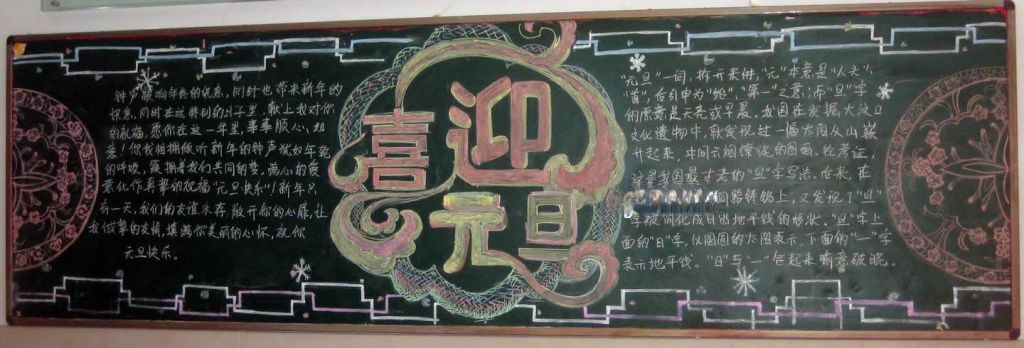 钟声敲响年终的优卷,同时也带来新年的
祝愿,同时在这特别的日子里,献上我对你
的祝福,愿你在这一年里,事事顺心,如
意!你我相拥倾听新年的钟声犹如年轮
的呼吸,簇拥着我们共同的梦,满心的爱
意化作真挚的祝福"元旦快乐"!新年只
有一天,我们的友谊永存,敞开你的心扉,让
我做挚的友情,填满你美丽的心怀,祝你
元旦快乐。
喜迎
元旦
"元旦"一词,拆开来讲,"元"本意是"人头"、
"首",后引申为"始"、"第一"之意;而"旦"字
的原意是天亮或早晨。我国在发掘大汶口
文化遗物中,就发现过一幅太阳从山巅
升起来,中间云烟缭绕的图画。经考证,
这是我国最古老的"旦"字写法。后来,在
铜器铸铭上,又发现了"旦"
字被简化成日出地平线的形状。"旦"字上
面的"日"字,以圆圆的太阳表示,下面的"一"字
表示地平线。"日"与"一"合起来寓意破晓。